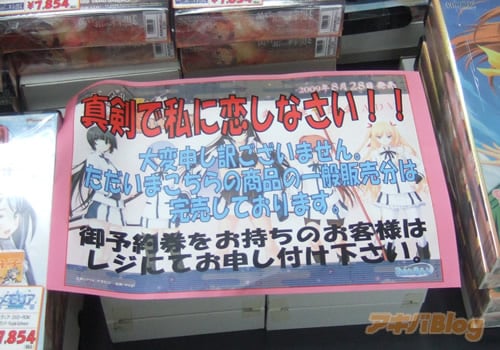 ¥7,854
¥7,854
2009年8月28日発売
真剣で私に恋しなさい！！
大変申し訳ございません。
ただいまこちらの商品の一般販売分は
完売しております。
御予約券をお持ちのお客様は
レジにてお申し付け下さい。
7,854
アキバBlog